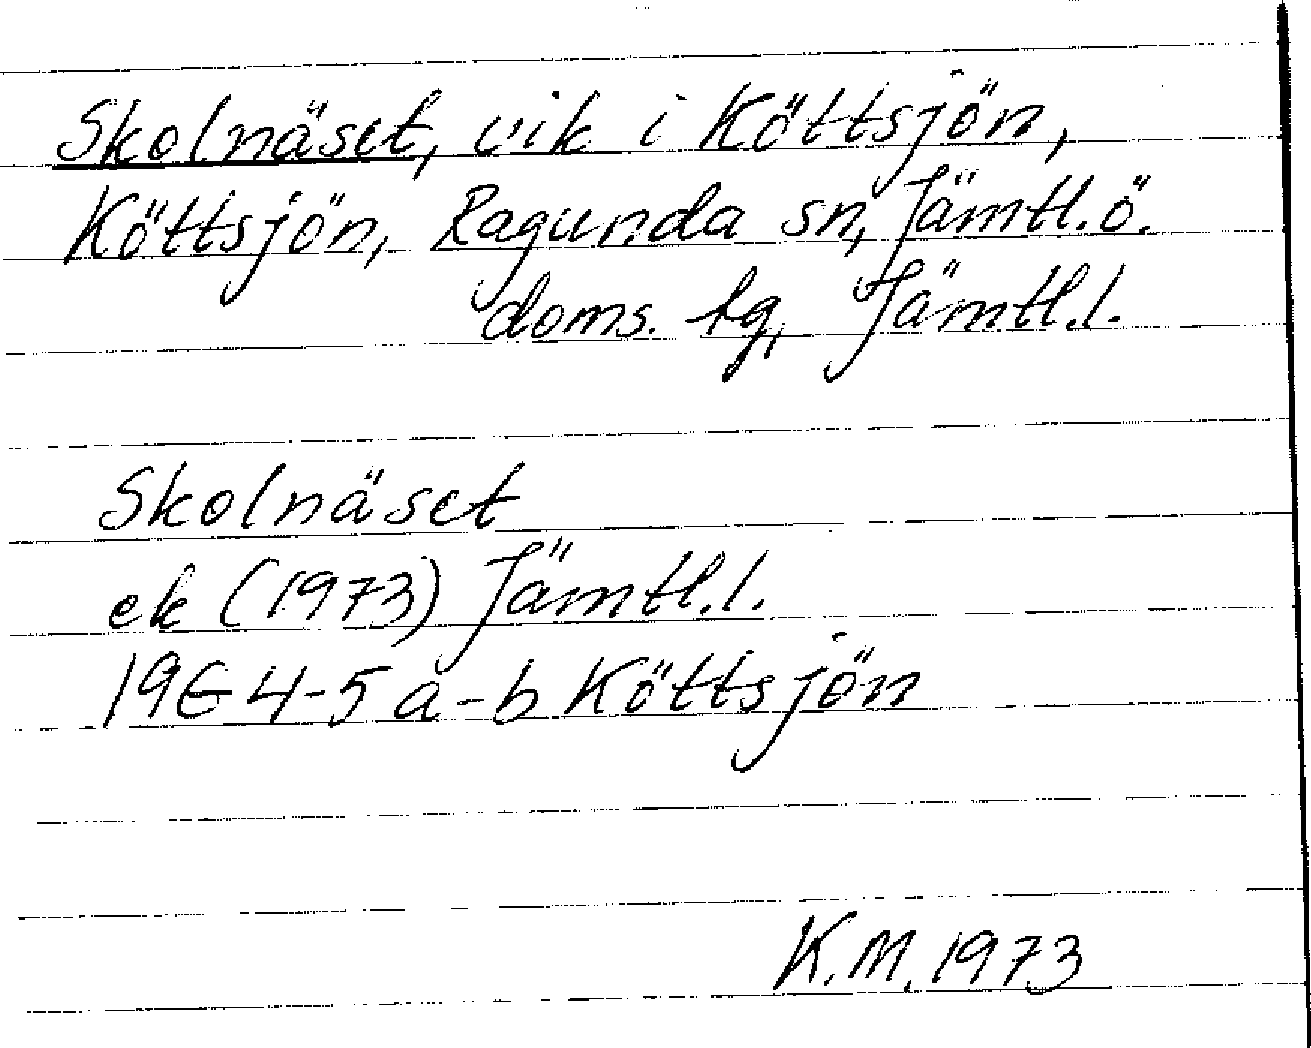 Skolnäset, vik i Köttsjön,
Köttsjön, Ragunda sn, Jämtl.ö.
doms. tg, Jämtl.l.
Skolnäset
ek (1973) Jämtl.l.
19G 4-5 a-b Köttsjön
K.M. 1973